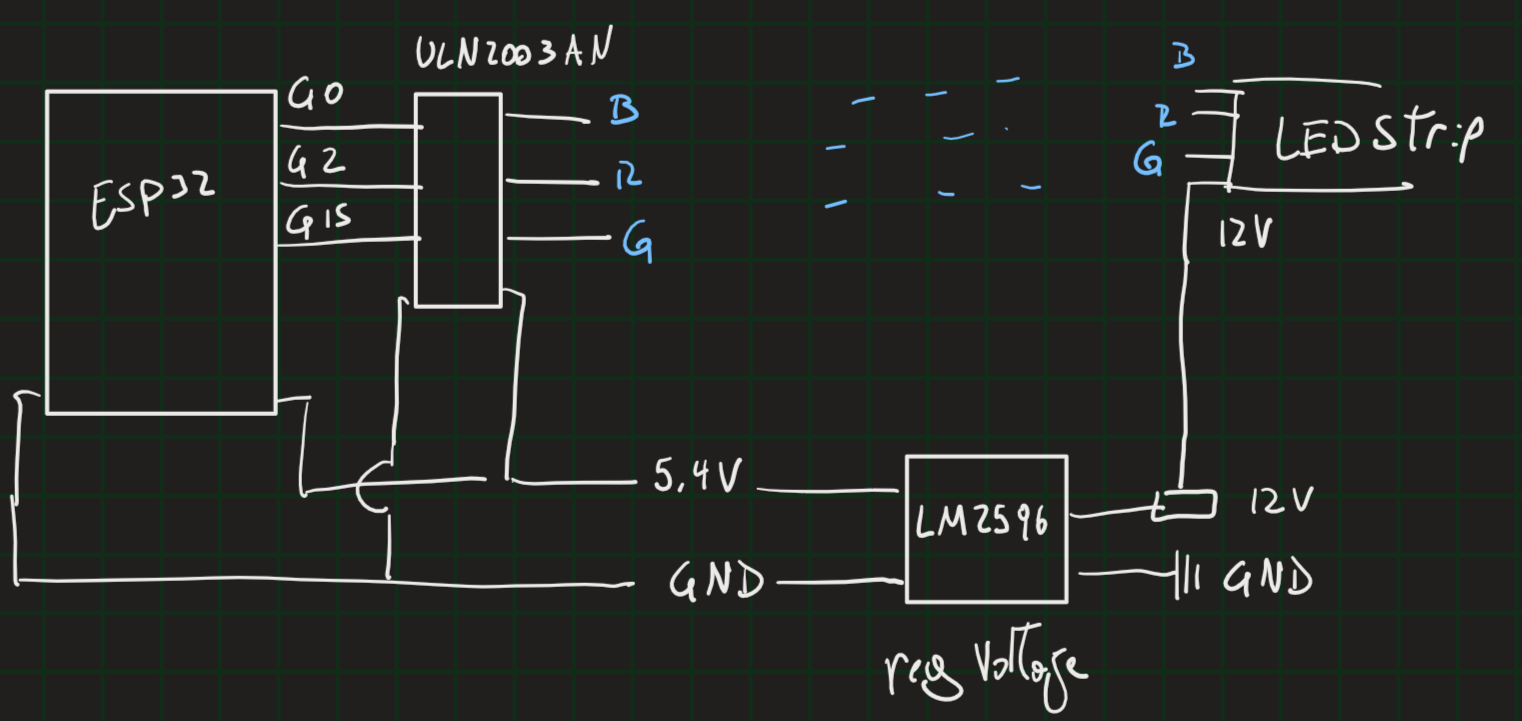 ULN2003AN
G0
G2
G15
ESP32
B
R
G
B
R
G
LED Strip
12V
5.4V
GND
LM2596
12V
GND
reg Voltage